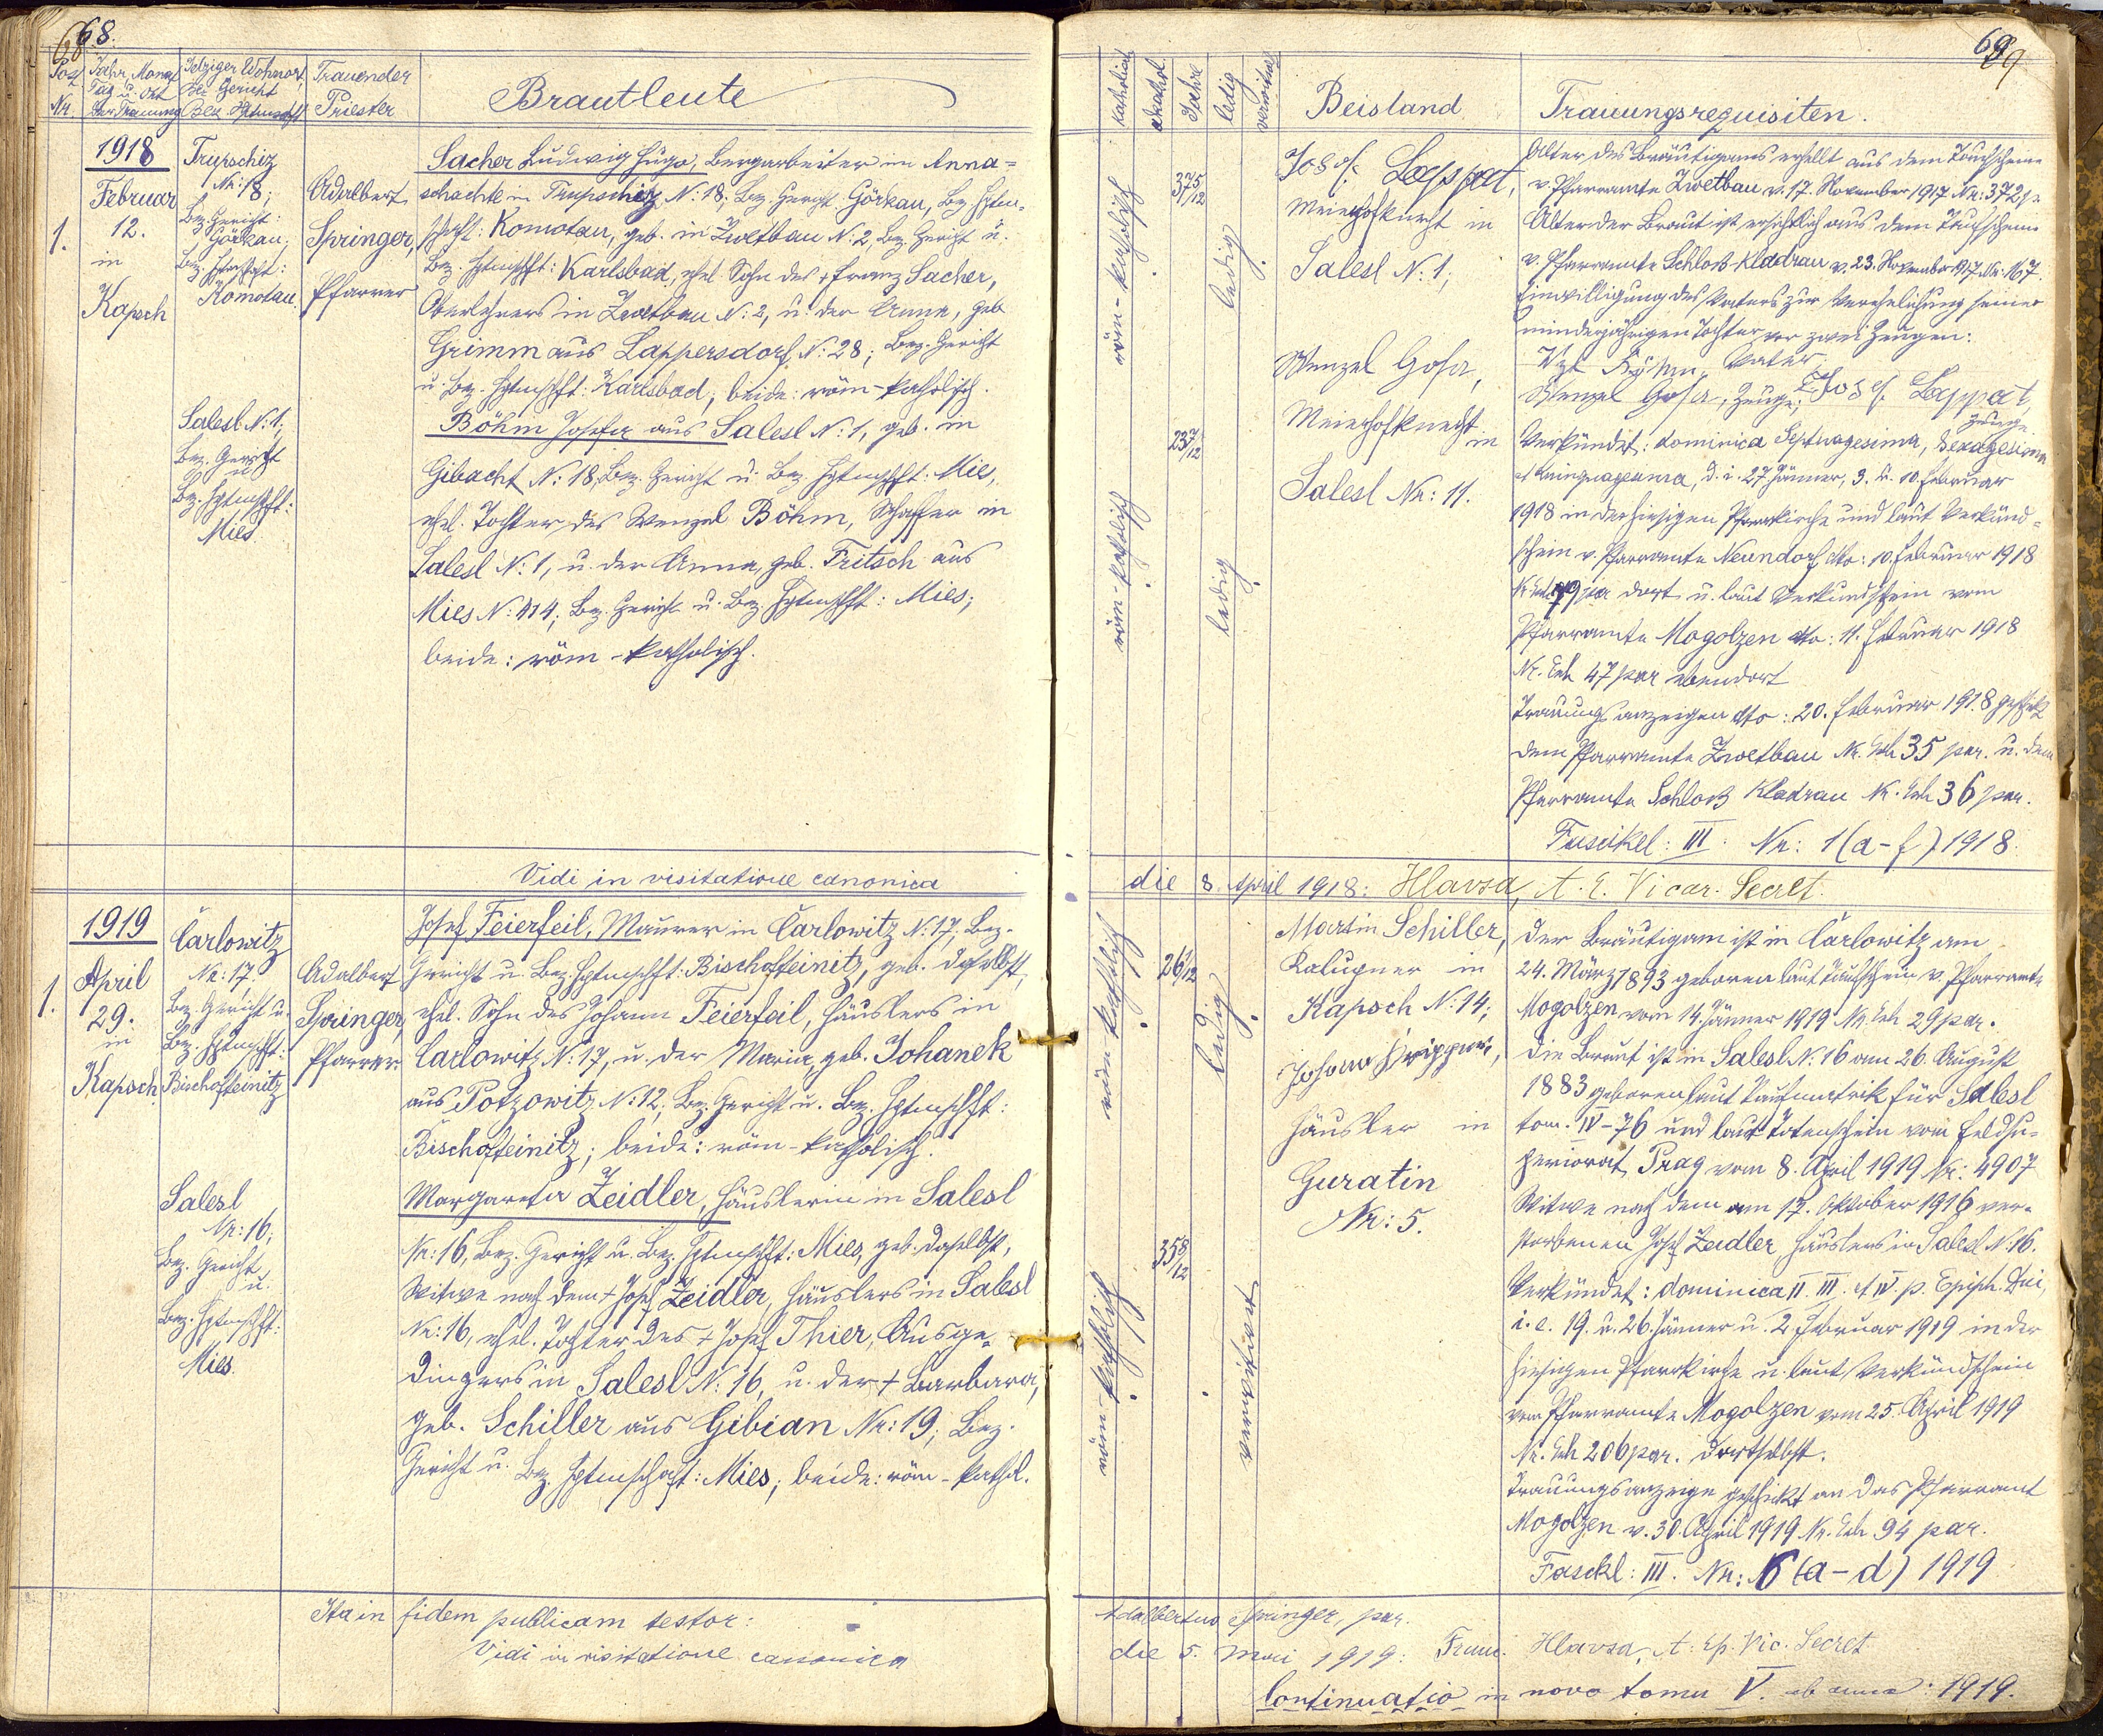 68.
68
Post Nr.
Jahr, Monat
Tag u. Ort
der Trauung
Jetziger Wohnort,
Bez. Gericht
Bez. Hptmschft
Trauender
Priester
Brautleute
1918
Februar
12.
in
Kapsch
1.
Trupschiz
Nr: 18;
Bez. Gericht:
Görkau;
Bez. Hptmschft:
Komotau.
Adalbert
Springer,
Pfarrer
Sacher Ludwig Hugo, Bergarbeiter im Anna-
schachte in Trupschiz N: 18; Bez. Gericht Görkau, Bez. Hptm-
schft: Komotau, geb. in Zwetbau N: 2, Bez. Gericht u.
Bez. Hptmschft: Karlsbad, ehel. Sohn des + Franz Sacher,
Oberlehrers in Zwetbau N: 2, u. der Anna, geb
Grimm aus Lappersdorf N: 28; Bez. Gericht
u. Bez. Hptmschft: Karlsbad; beide: röm-katholisch.
Salesl N: 1;
Bez. Gericht
u
Bez. Hptmschft:
Mies
Böhm Josefa aus Salesl N: 1, geb. in
Gibacht N: 18, Bez. Gericht u. Bez. Hptmschft: Mies,
ehel. Tochter des Wenzel Böhm, Schaffer in
Salesl N: 1, u. der Anna, geb. Fritsch aus
Mies N: 414; Bez. Gericht u. Bez. Hptmschft: Mies;
beide: röm-katholisch.
Vidi in visitatione canonica
1919
April
29.
in
Kapsch.
1.
Čarlowitz
Nr: 17.
Bez. Gericht u.
Bez. Hptmschft:
Bischofteinitz
Adalbert
Springer,
Pfarrer
Josef Feierfeil, Maurer in Čarlowitz N: 17; Bez.
Gericht u. Bez. Hptmschft: Bischofteinitz, geb. daselbst,
ehel. Sohn des Johann Feierfeil, Häuslers in
Čarlowitz N: 17, u. der Maria, geb. Johanek
aus Potzowitz N: 12; Bez. Gericht u. Bez. Hptmschft:
Bischofteinitz; beide: röm-katholisch.
Salesl
Nr: 16;
Bez. Gericht
u.
Bez. Hptmschft:
Mies.
Margareta Zeidler, Häuslerin in Salesl
Nr: 16, Bez. Gericht u. Bez. Hptmschft: Mies, geb. daselbst,
Witwe nach dem + Josef Zeidler, Häuslers in Salesl
Nr: 16, ehel. Tochter des + Josef Thier, Ausge-
dingers in Salesl N: 16, u. der + Barbara,
geb. Schiller aus Gibian Nr: 19; Bez.
Gericht u. Bez. Hptmschaft: Mies; beide: röm-kathol.
Ita in fidem publicam testor:
Vidi in visitatione canonica
69
69
katholisch
akathol.
Jahre
ledig
verwitwet
Beistand
Trauungsrequisiten.
röm-katholisch.
37 5/12
ledig.
röm-katholisch.
23 7/12
ledig.
Josef Lappat,
Meierhofknecht in
Salesl N: 1;
Wenzel Gosa,
Meierhofknecht
in
Salesl Nr: 11.
Alter des Bräutigams erhellt aus dem Taufscheine
v. Pfarramte Zwetbau v. 17. November 1917 Nr: 372
Alter der Braut ist ersichtlich aus dem Taufscheine
v. Pfarramte Schloß Kladrau v. 23. November 1917, Nr: 167.
Einwilligung des Vaters zur Verehelichung seiner
minderjährigen Tochter vor zwei Zeugen:
Böhm, Vater.
Wenzel Gosa, Zeuge; Josef Lappat,
Zeuge
Verkündet: dominica Septuagesima, Sexagesima
et Quinquagesima, d. i. 27. Jänner, 3. u. 10. Februar
1918 in der hiesigen Pfarrkirche und laut Verkünd-
schein v. Pfarramte Neundorf dto: 10. Februar 1918
dort u. laut Verkündschein vom
Pfarramte Mogolzen dto: 11. Februar 1918
Nr. Exh 47 par ebendort
Trauungsanzeigen dto: 20. Februar 1918 geschickt
dem Pfarramte Zwetbau Nr. Exh 35 par. u. dem
Pfarramte Schloß Kladrau Nr. Exh 36 par.
Fascikel: III. Nr: 1 (a-f) 1918.
die 8. April 1918: Hlavsa, A. E. Vicar. Secret.
röm-katholisch.
26 1/12
ledig.
röm-katholisch.
35 8/12
verwitwet
Martin Schiller,
Kalupner in
Kapsch N: 14;
Johann
Häusler in
Guratin
Nr: 5.
Der Bräutigam ist in Čarlowitz am
24. März 1893 geboren laut Taufschein v. Pfarramte
Mogolzen vom 14. Jänner 1919 Nr. Exh 29 par.
Die Braut ist in Salesl N: 16 am 26. August
1883 geboren laut Taufmatrik für Salesl
tom. IV-76 und laut Totenschein vom Feldsu-
periorat Prag vom 8. April 1919 Nr: 4907
Witwe nach dem am 17. Oktober 1916 ver-
storbenen Josef Zeidler, Häuslers in Salesl N: 16.
Verkündet: dominica II. III. et IV. p. Epiph. Dni,
i. e. 19. u. 26. Jänner u. 2. Februar 1919 in der
hiesigen Pfarrkirche u. laut Verkündschein
vom Pfarramte Mogolzen vom 25. April 1919
Nr. Exh 206 par. dortselbst.
Trauungsanzeige geschickt an das Pfarramt
Mogolzen v. 30. April 1919 Nr. Exh 94 par.
Fasckl: III. Nr: 6 (a-d) 1919
Adalbertus Springer, par.
die 5. Mai 1919: Franc. Hlavsa, A. Ep. Vic. Secret.
Continuatio in novo tomu V. ab anno: 1919.